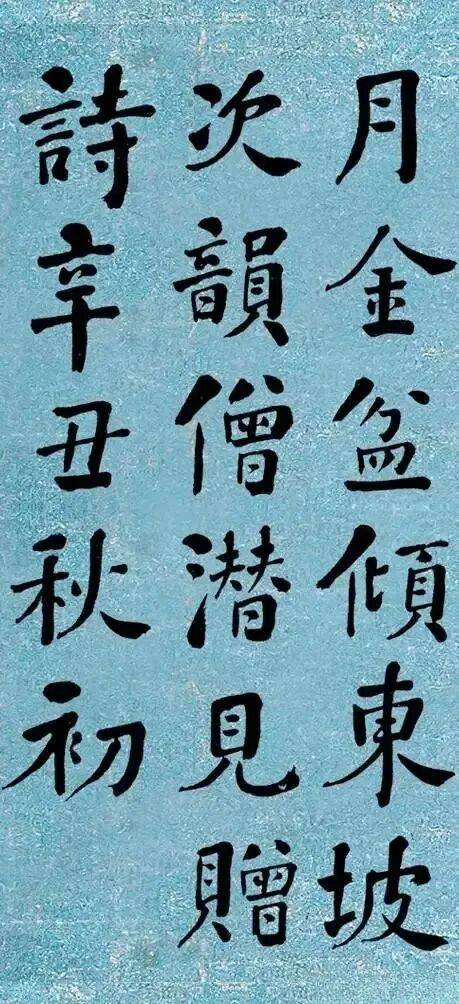 月金盆傾東坡
次韻僧潛見贈
詩辛丑秋初